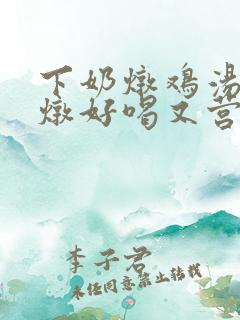 下奶燉鸡汤
燉好喝又营
李子君
未经同意禁止转载